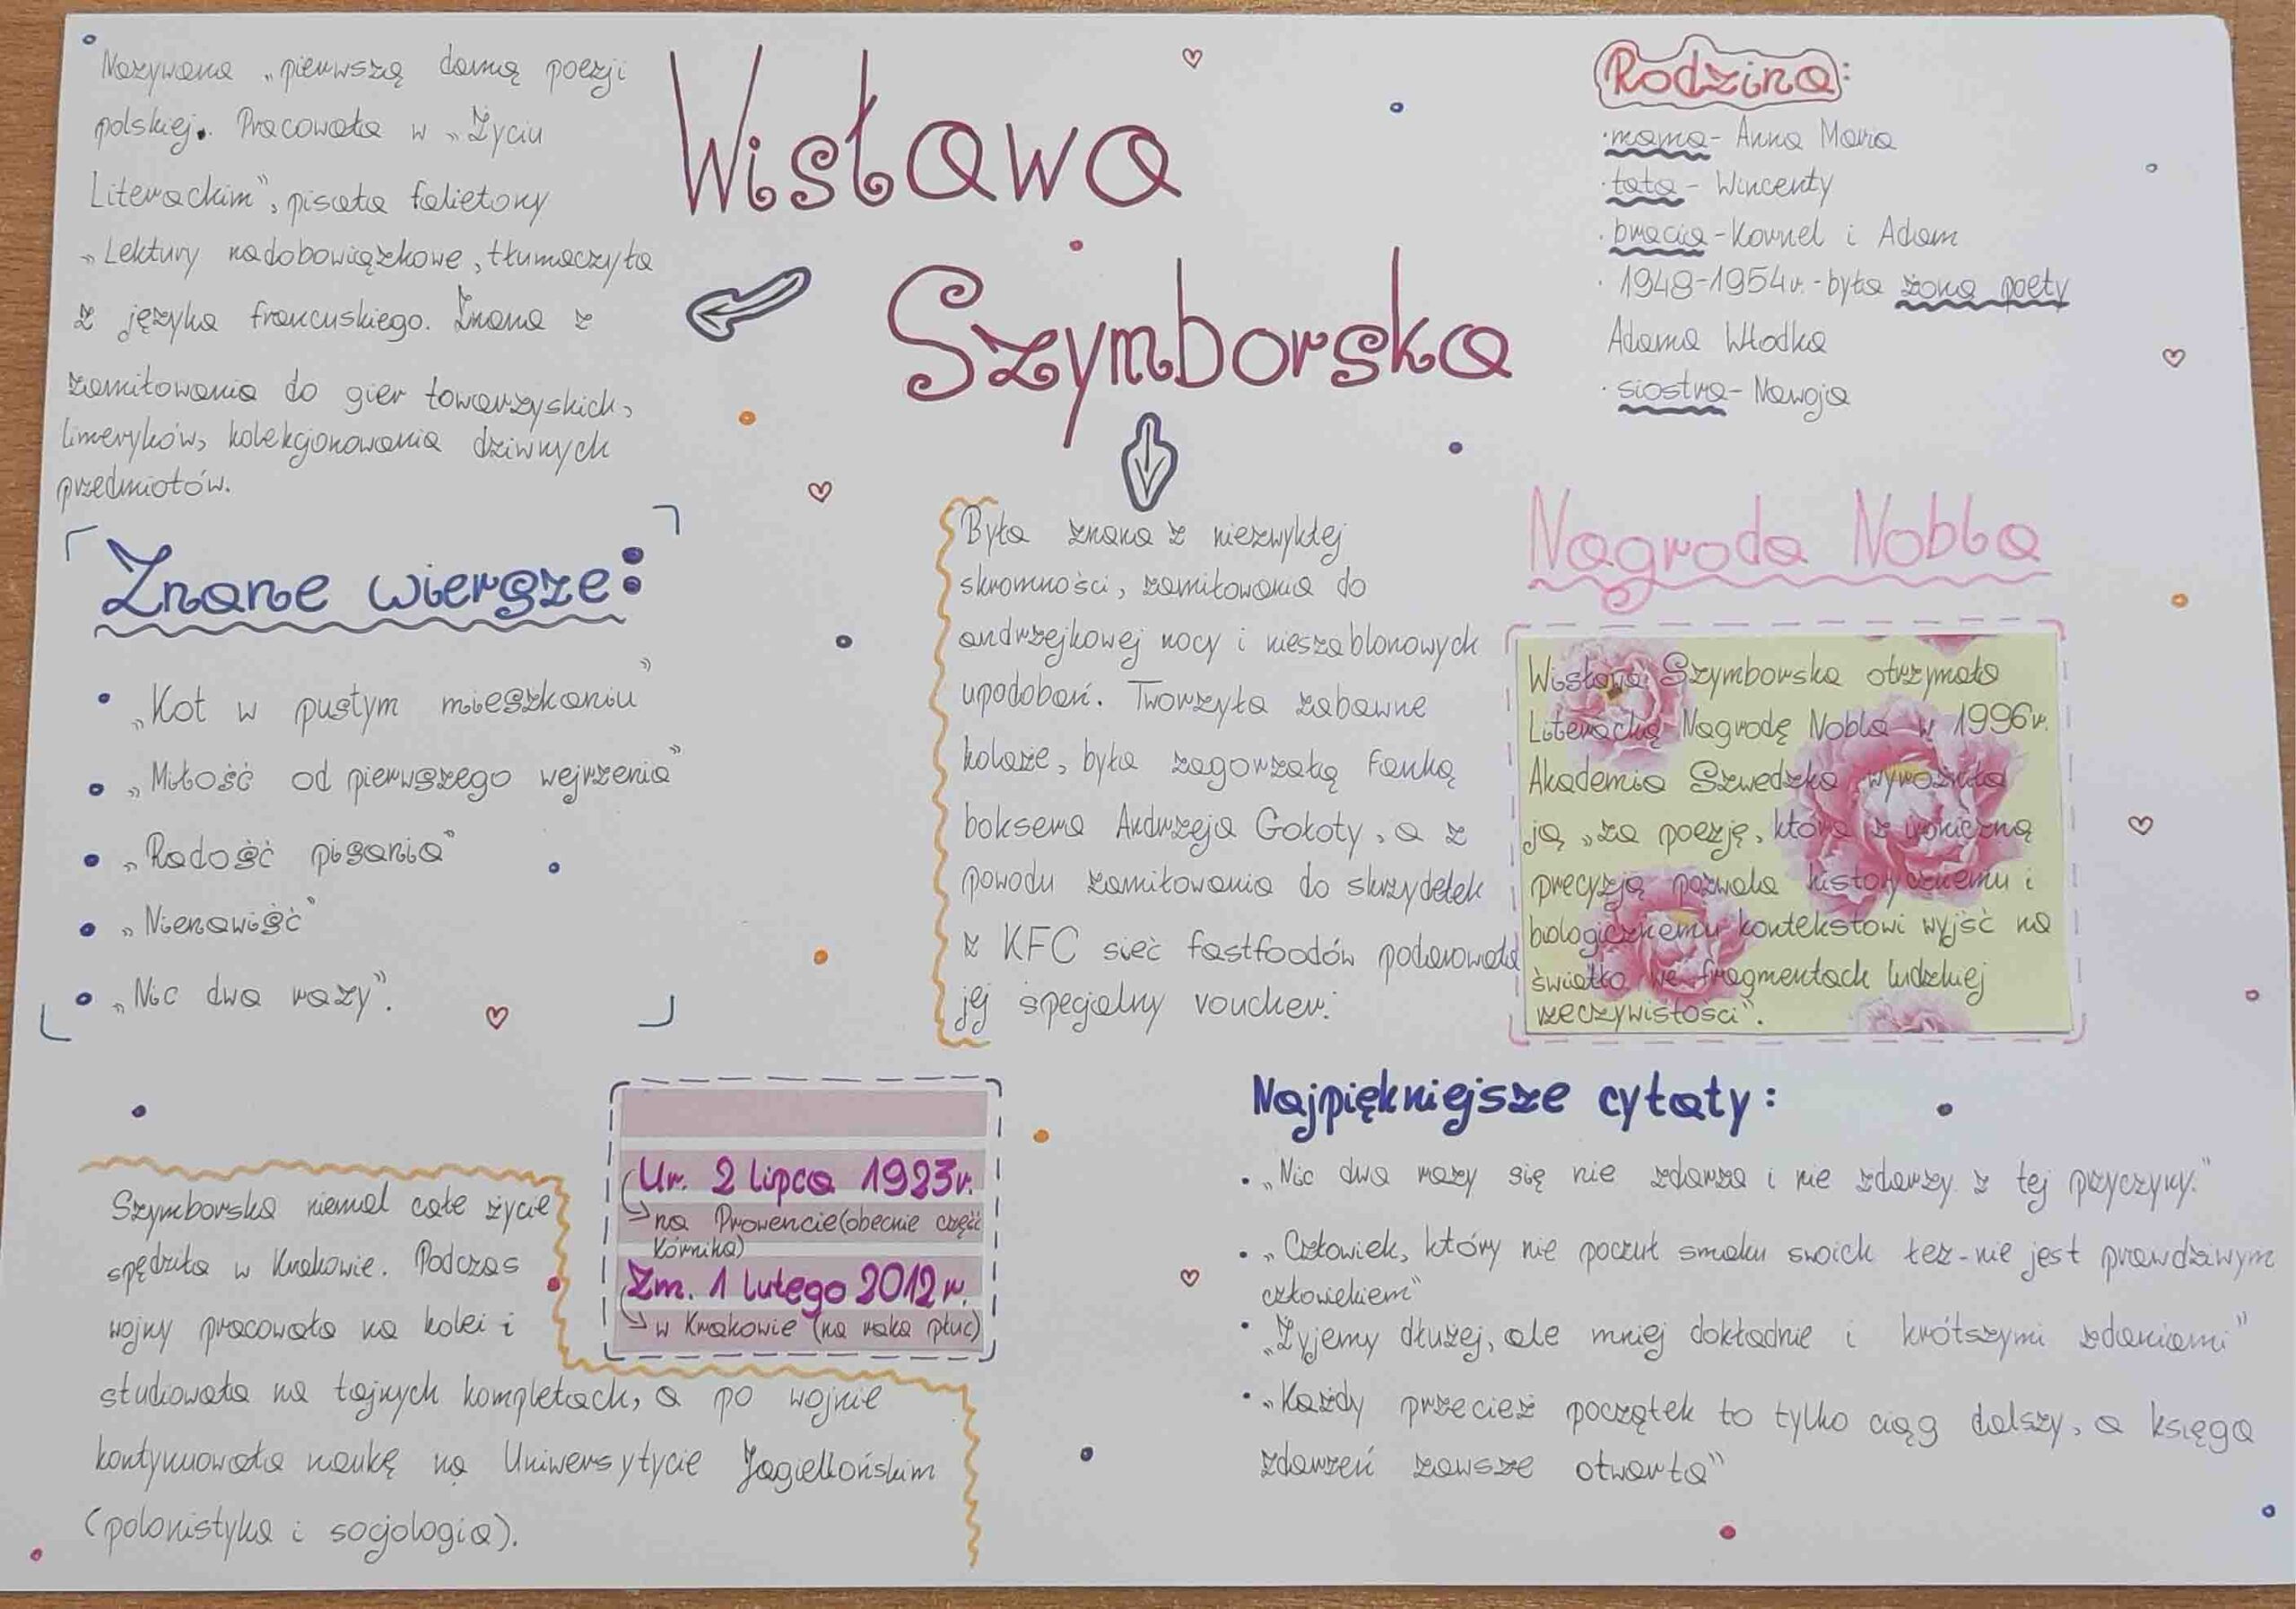 Wisława
Szymborska
Nazywana „pierwszą damą poezji
polskiej. Pracowała w „Życiu
Literackim”, pisała felietony
„Lektury nadobowiązkowe, tłumaczyła
z języka francuskiego. Znana z
zamiłowania do gier towarzyskich,
limeryków, kolekcjonowania dziwnych
przedmiotów.
Rodzina:
·mama- Anna Maria
·tata- Wincenty
·bracia-Kornel i Adam
·1948-1954r.-była żoną poety
Adama Włodka
·siostra- Nawoja
Znane wiersze:
• „Kot w pustym mieszkaniu”
• „Miłość od pierwszego wejrzenia”
• „Radość pisania”
• „Nienawiść”
• „Nic dwa razy”.
Była znana z niezwykłej
skromności, zamiłowania do
andrzejkowej nocy i nieszablonowych
upodobań. Tworzyła zabawne
kolaże, była zagorzałą fanką
boksera Andrzeja Gołoty, a z
powodu zamiłowania do skrzydełek
z KFC sieć fastfoodów podarowała
jej specjalny voucher.
Nagroda Nobla
Wisława Szymborska otrzymała
Literacką Nagrodę Nobla w 1996r.
Akademia Szwedzka wyróżniła
ją „za poezję, która z ironiczną
precyzją pozwala historycznemu i
biologicznemu kontekstowi wyjść na
światło we fragmentach ludzkiej
rzeczywistości”.
Ur. 2 lipca 1923r.
na Prowencie(obecnie część
Kórnika)
Zm. 1 lutego 2012 r.
w Krakowie (na raka płuc)
Szymborska niemal całe życie
spędziła w Krakowie. Podczas
wojny pracowała na kolei i
studiowała na tajnych kompletach, a po wojnie
kontynuowała naukę na Uniwersytycie Jagiellońskim
(polonistyka i socjologia).
Najpiękniejsze cytaty:
• „Nic dwa razy się nie zdarza i nie zdarzy z tej przyczyny.”
• „Człowiek, który nie poczuł smaku swoich łez-nie jest prawdziwym
człowiekiem”
• „Żyjemy dłużej, ale mniej dokładnie i krótszymi zdaniami”
• „Każdy przecież początek to tylko ciąg dalszy, a księga
zdarzeń zawsze otwarta”